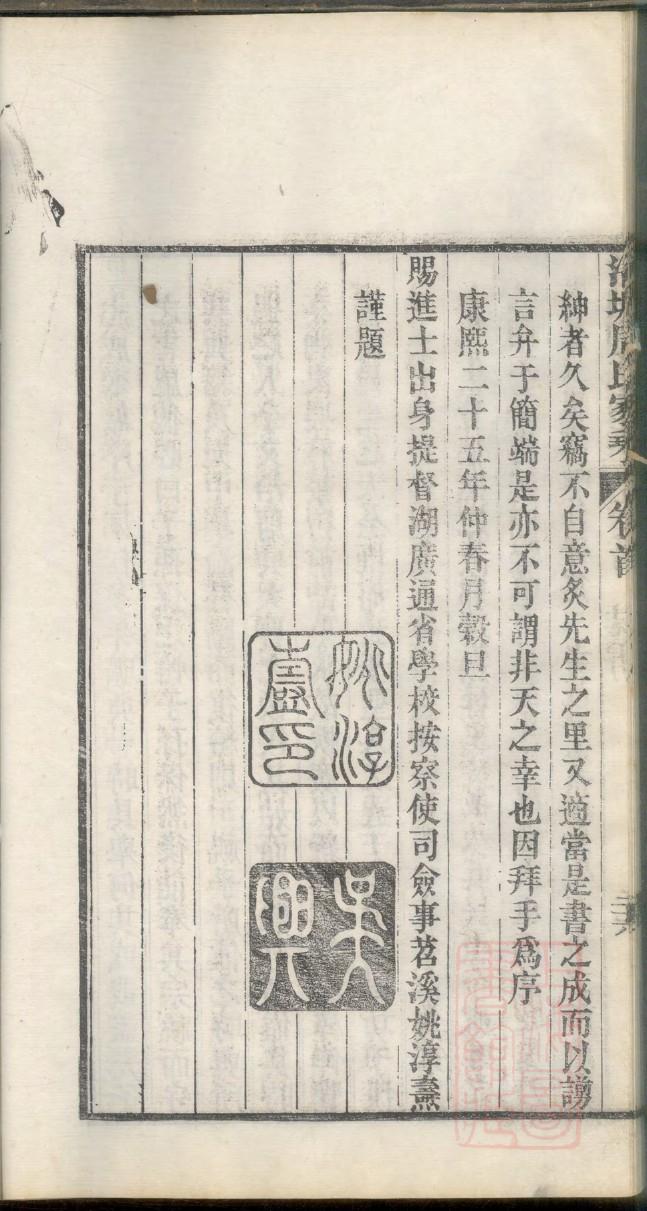 周氏家
卷首
紳者久矣竊不自意炙先生之里又適當是書之成而以謭
言弁于簡端是亦不可謂非天之幸也因拜手爲序
康熙二十五年仲春月穀旦
賜進士出身提督湖廣通省學校按察使司僉事苕溪姚淳燾
謹題
姚淳燾印
吳興